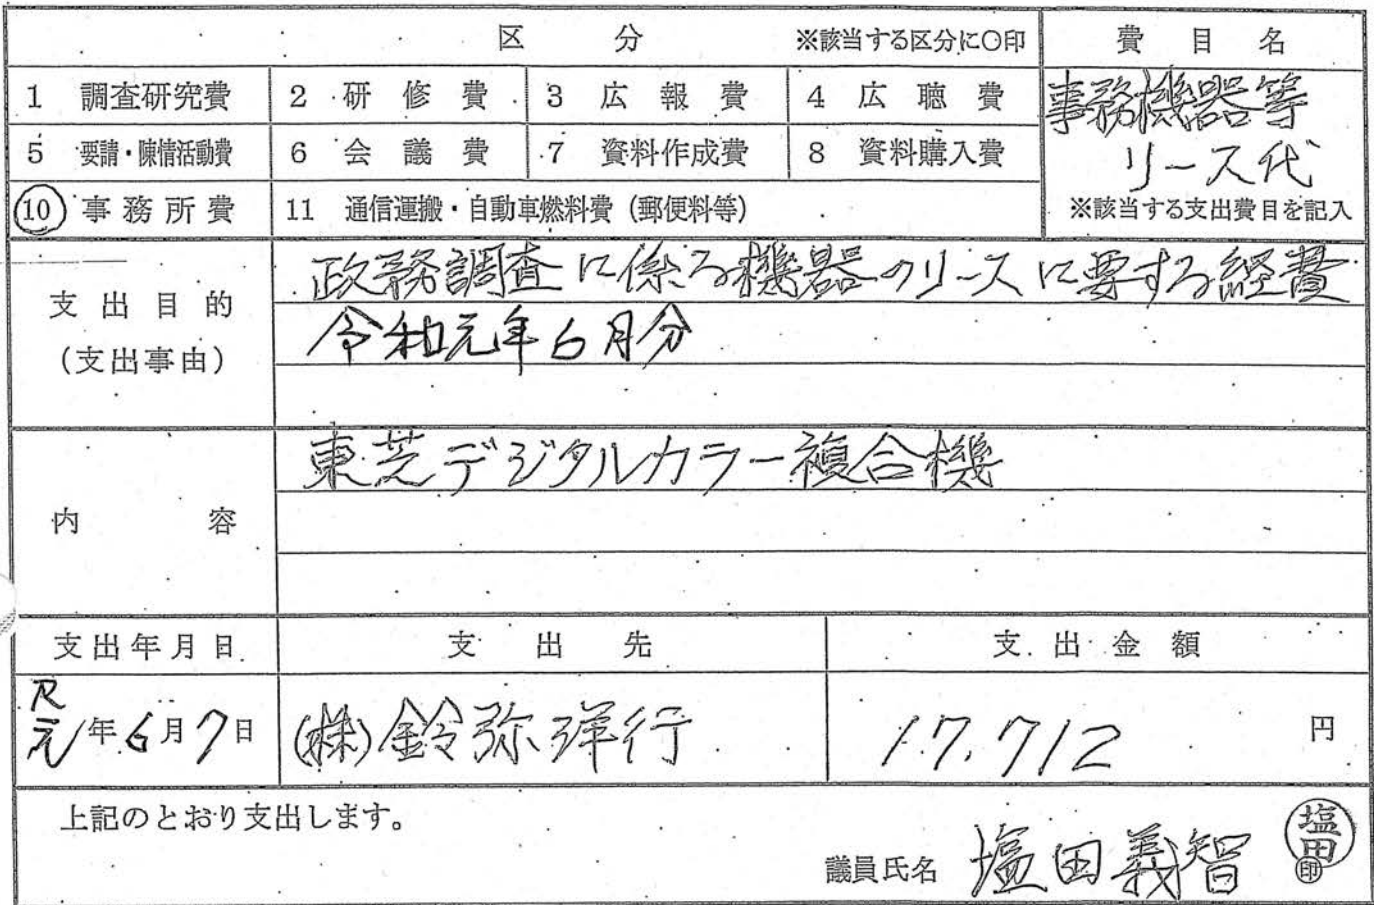 区 分 ※該当する区分に○印 費目名
1 調査研究費 2 研修費 3 広報費 4 広聴費 事務機器等
5 要請・陳情活動費 6 会議費 7 資料作成費 8 資料購入費 リース代
⑩ 事務所費 11 通信運搬・自動車燃料費(郵便料等) ※該当する支出費目を記入
支出目的 政務調査に係る機器のリースに要する経費
(支出事由) 令和元年6月分
内容 東芝デジタルカラー複合機
支出年月日 支出先 支出金額
R元年6月7日 (株)鈴弥洋行 17,712 円
上記のとおり支出します。
議員氏名 塩田義智 塩田 印